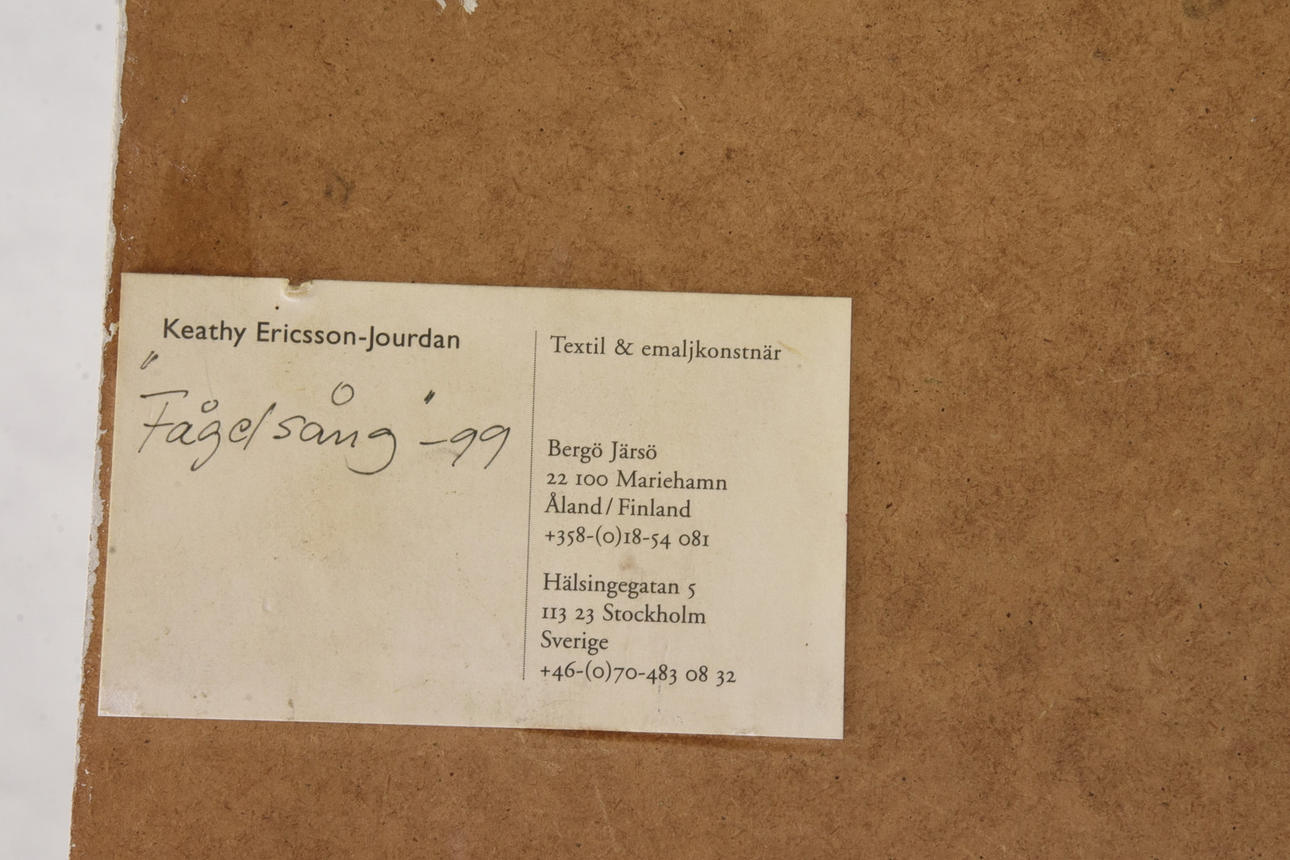 Keathy Ericsson-Jourdan
"Fågelsång" -99
Textil & emaljkonstnär
Bergö Järsö
22 100 Mariehamn
Åland / Finland
+358-(0)18-54 081
Hälsingegatan 5
113 23 Stockholm
Sverige
+46-(0)70-483 08 32